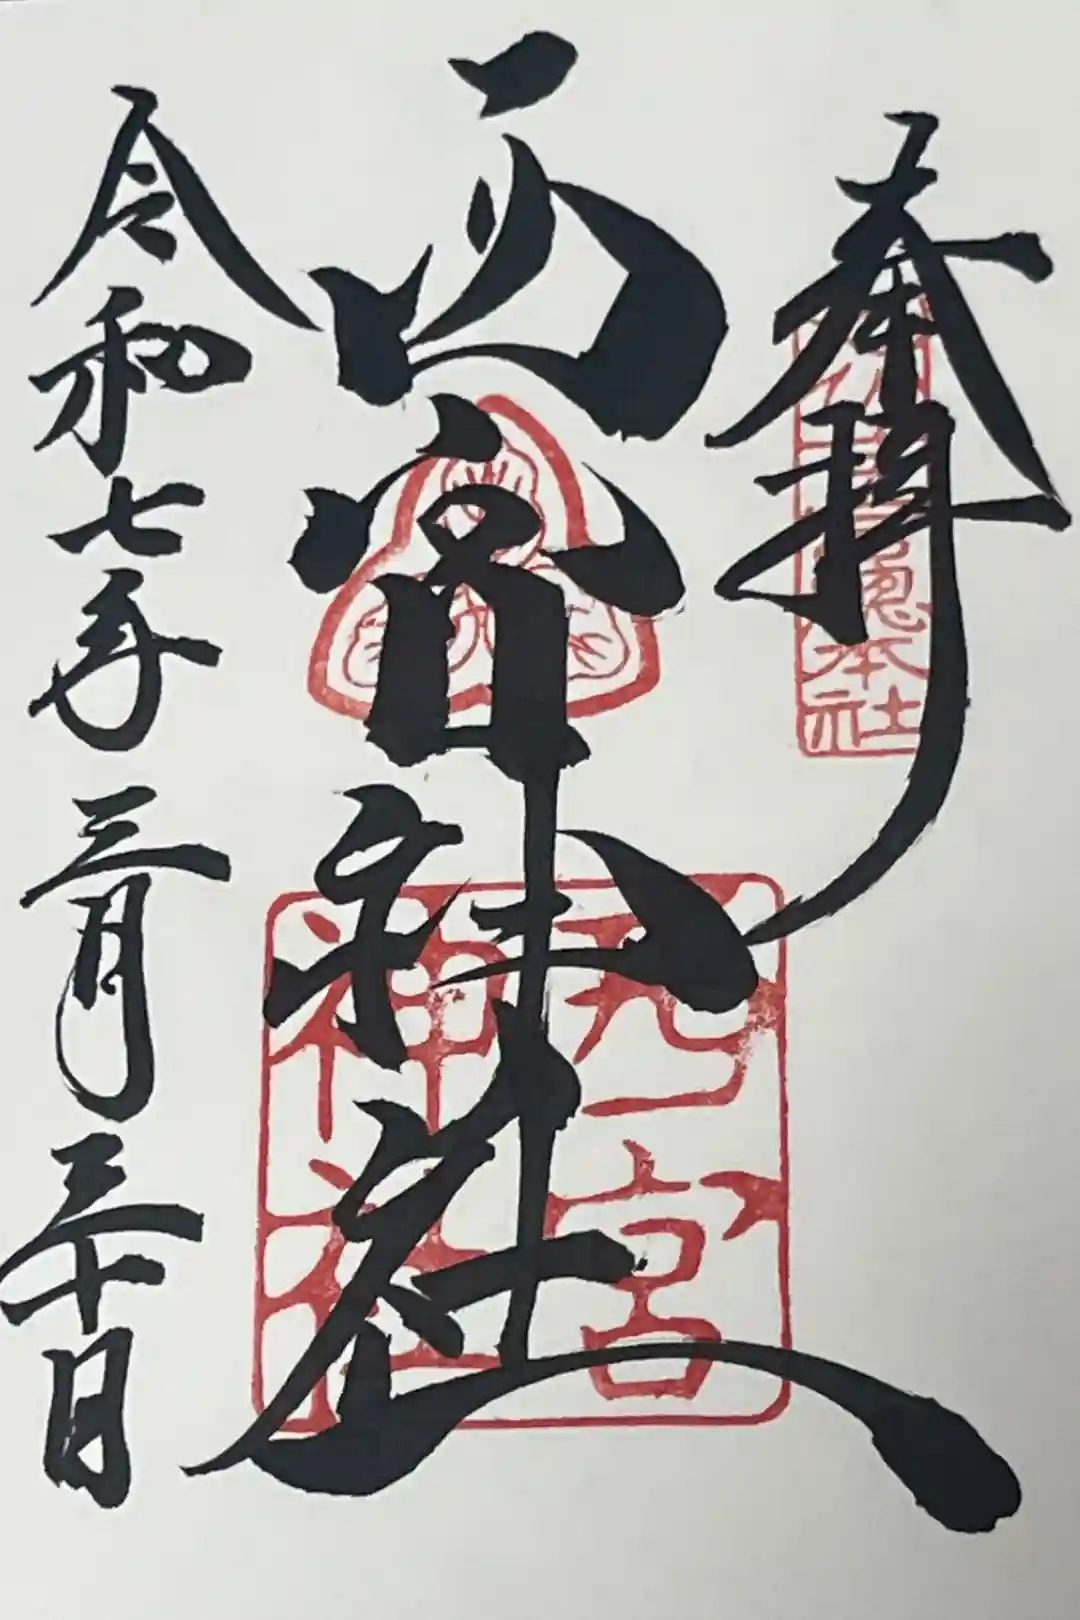 奉拝
本社
西宮神社
西宮神社
令和七年三月三十日